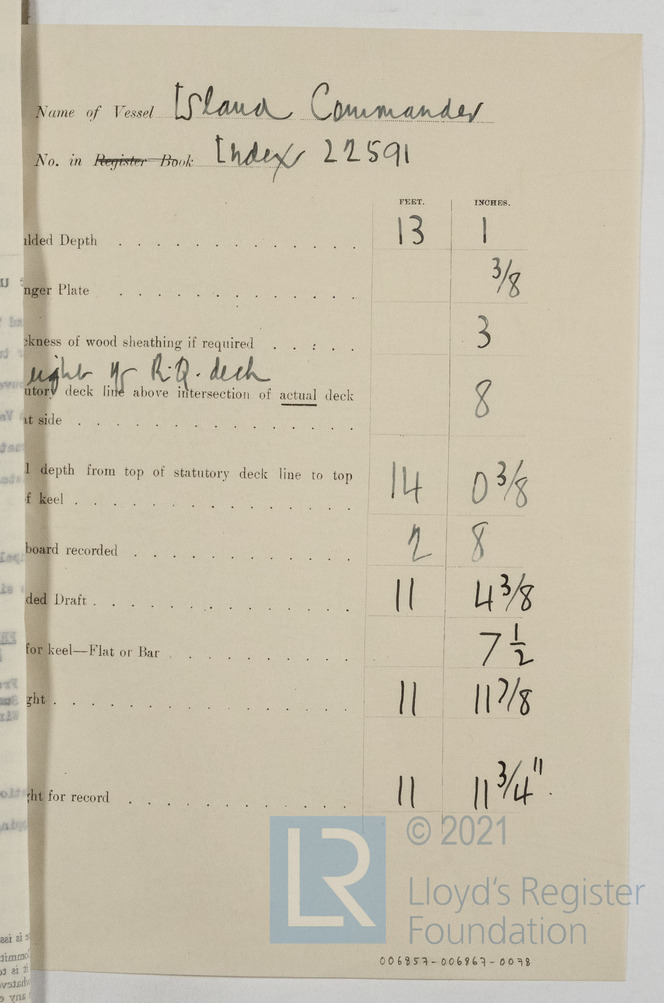 Name of Vessel Island Commander
No. in Register Book Index 22591
FEET. INCHES.
ulded Depth 13 1
nger Plate 3/8
ckness of wood sheathing if required 3
eight of R.Q. deck
utory deck line above intersection of actual deck
at side 8
l depth from top of statutory deck line to top
f keel 14 0 3/8
board recorded 2 8
ded Draft 11 4 3/8
for keel—Flat or Bar 7 1/2
ght 11 11 7/8
ght for record 11 11 3/4"
© 2021
LR
Lloyd's Register
Foundation
006857-006867-0078